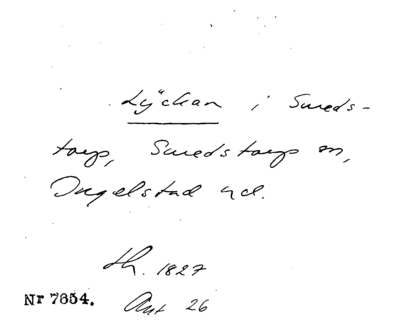 Lÿckan i Smeds-
torp, Smedstorps sn,
Ingelstad hd.
th. 1827
Nr 7654. Ant 26